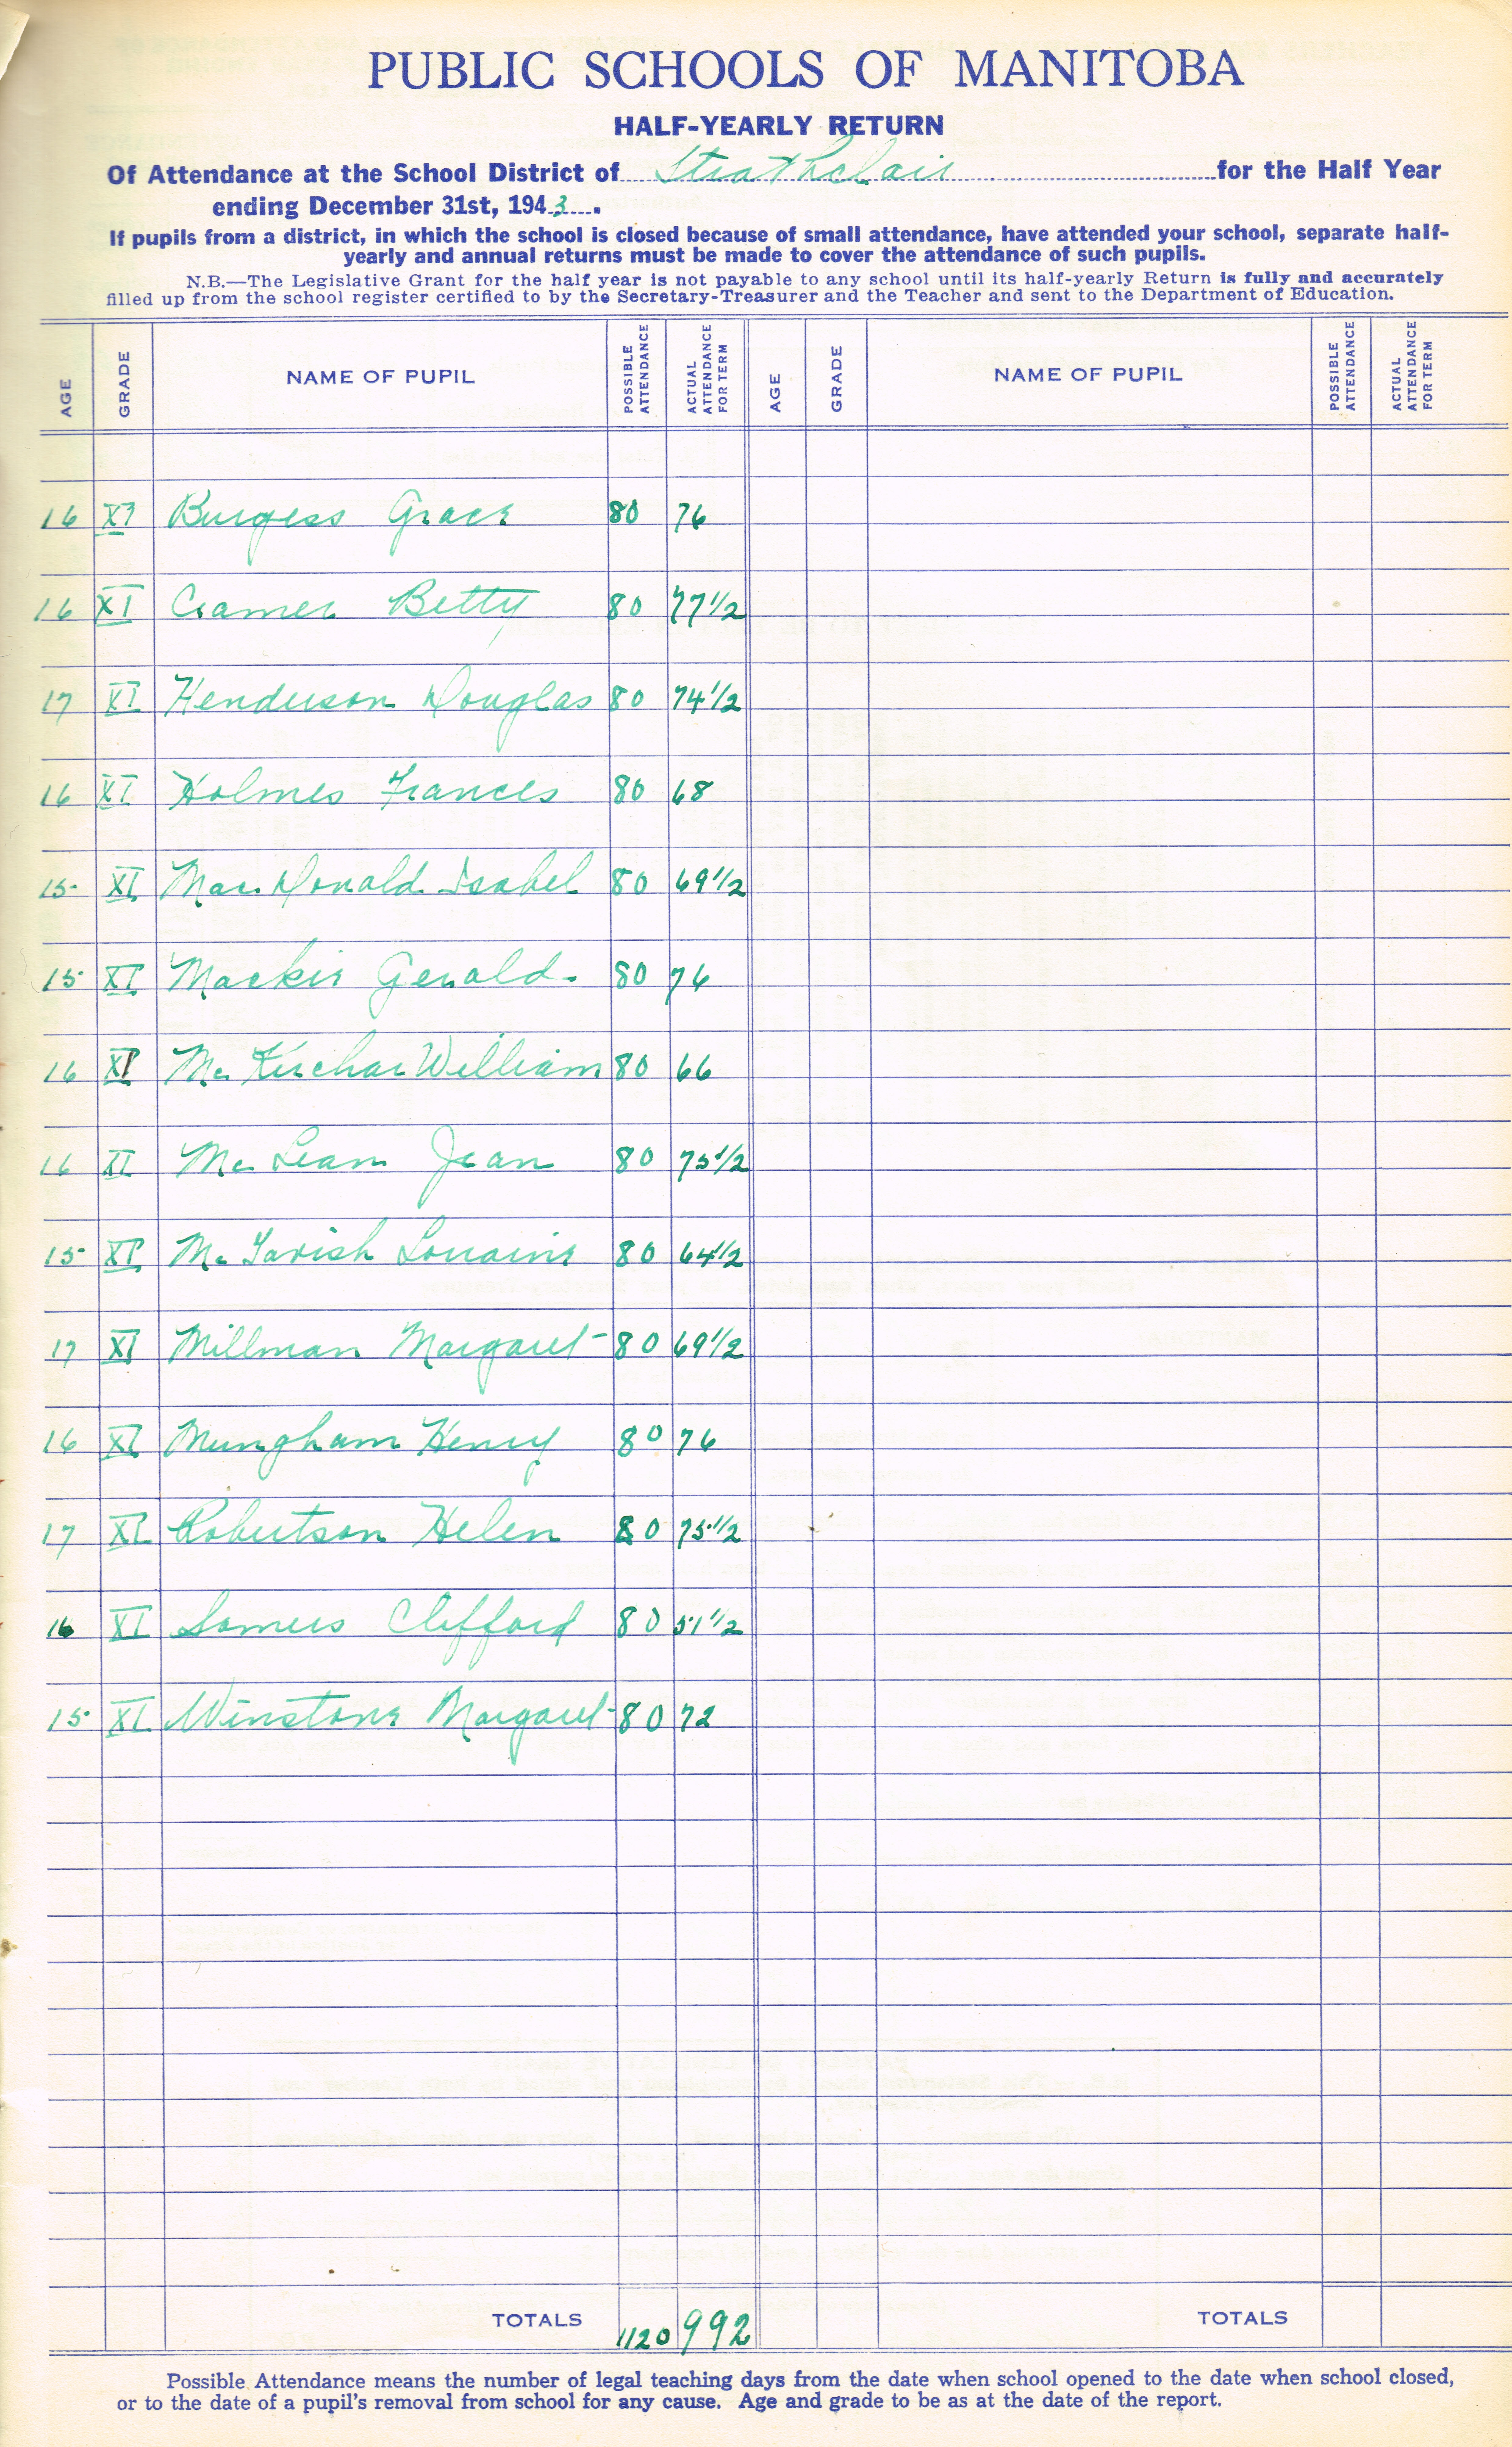 PUBLIC SCHOOLS OF MANITOBA
HALF-YEARLY RETURN
Of Attendance at the School District of Strathclair for the Half Year
ending December 31st, 1943.
If pupils from a district, in which the school is closed because of small attendance, have attended your school, separate half-
yearly and annual returns must be made to cover the attendance of such pupils.
N.B.—The Legislative Grant for the half year is not payable to any school until its half-yearly Return is fully and accurately
filled up from the school register certified to by the Secretary-Treasurer and the Teacher and sent to the Department of Education.
AGE GRADE NAME OF PUPIL POSSIBLE ATTENDANCE ACTUAL ATTENDANCE FOR TERM AGE GRADE NAME OF PUPIL POSSIBLE ATTENDANCE ACTUAL ATTENDANCE FOR TERM
16 XI Burgess Grace 80 76
16 XI Cramer Betty 80 77 1/2
17 XI Henderson Douglas 80 74 1/2
16 XI Holmes Frances 80 68
15 XI MacDonald Isabel 80 69 1/2
15 XI Mackie Gerald 80 76
16 XI McKerchar William 80 66
16 XI McLean Jean 80 75 1/2
15 XI McTavish Lorraine 80 64 1/2
17 XI Millman Margaret 80 69 1/2
16 XI Mungham Henry 80 76
17 XI Robertson Helen 80 75 1/2
16 XI Somers Clifford 80 51 1/2
15 XI Winstone Margaret 80 72
TOTALS 1120 992 TOTALS
Possible Attendance means the number of legal teaching days from the date when school opened to the date when school closed,
or to the date of a pupil's removal from school for any cause. Age and grade to be as at the date of the report.